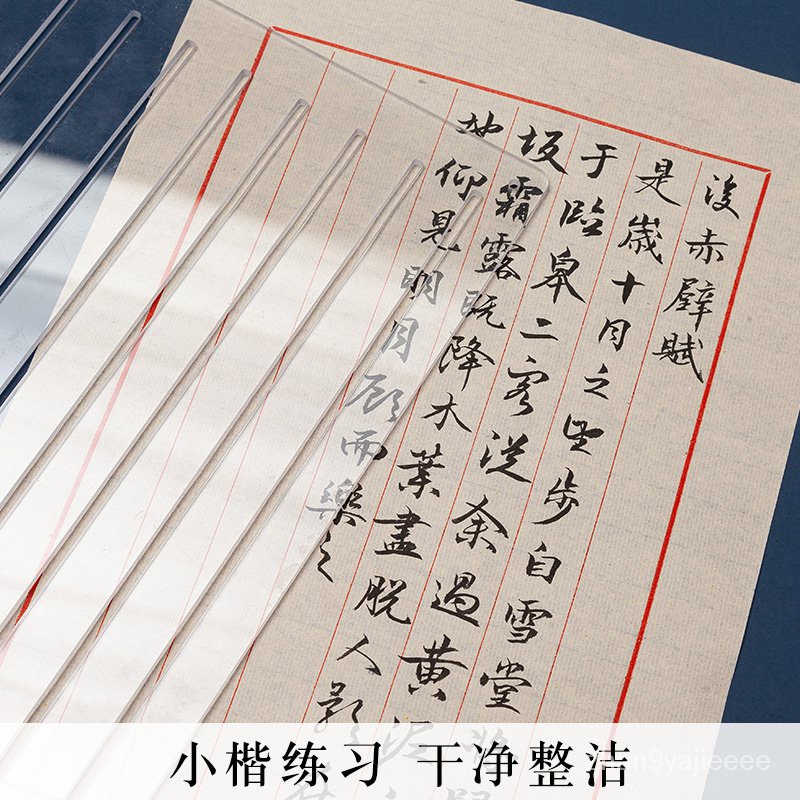 後赤壁賦
是歲十月之望步自雪堂
于臨皋二客從余過黃泥
坂霜露既降木葉盡脫人影
地仰見明月顧而樂之
小楷练习 干净整洁